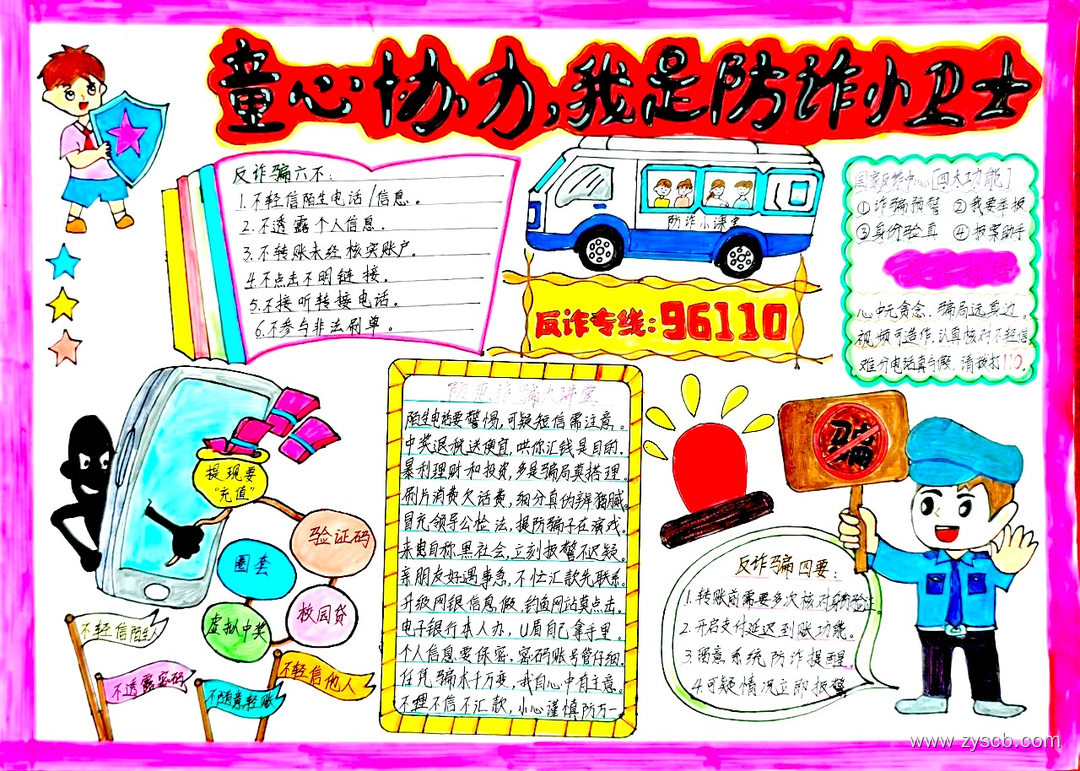 童心协力,我是防诈小卫士
反诈骗六不:
1.不轻信陌生电话/信息。
2.不透露个人信息。
3.不转账未经核实账户。
4.不点击不明链接。
5.不接听转接电话。
6.不参与非法刷单。
防诈小课堂
反诈专线:96110
国家反诈中心[四大功能]
①诈骗预警 ②我要举报
③身份验真 ④报案助手
心中无贪念,骗局远身边,
视频可造作,认真核对不轻信,
难分电话真与假,请拨打110。
提现要
"充值"
验证码
圈套
校园贷
虚拟中奖
不轻信陌生人
不透露密码
不随意轻账
不轻信他人
诈骗大讲堂
陌生电话要警惕,可疑短信需注意。
中奖退税送便宜,哄你汇钱是目的。
暴利理财和投资,多是骗局莫搭理。
刷片消费欠话费,细分真伪辨猫腻。
冒充领导公检法,提防骗子在演戏。
来电自称黑社会,立刻报警不迟疑。
亲朋友好遇事急,不忙汇款先联系。
升级网银信息假,钓鱼网站莫点击。
电子银行本人办,U盾自己拿手里。
个人信息要保密,密码账号管仔细。
任凭骗术千万变,我自心中有主意。
不理不信不汇款,小心谨慎防万一。
骗
反诈骗四要:
1.转账前需要多次核对身份验证。
2.开启支付延迟到账功能。
3.留意系统防诈提醒。
4.可疑情况立即报警
www.zyscb.com